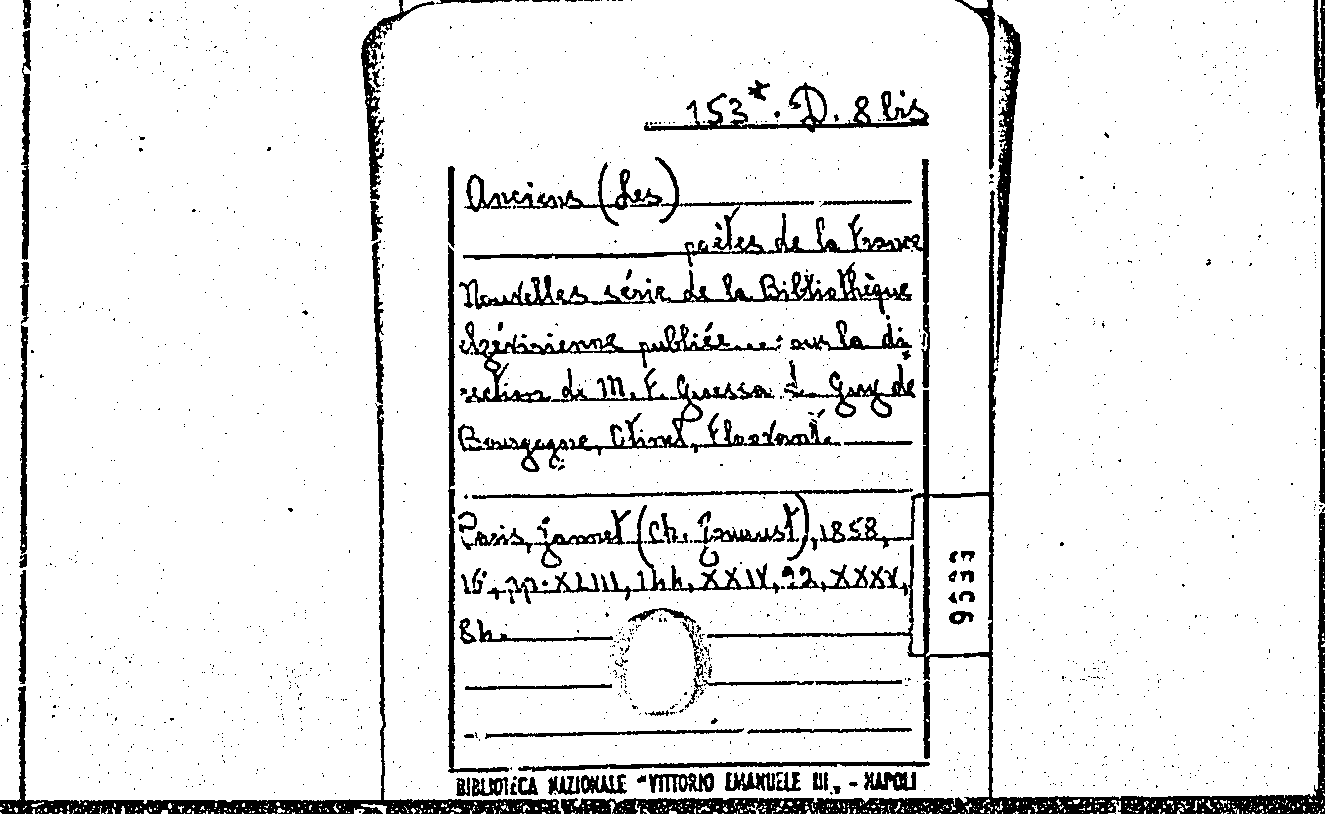 153*. D. 8 bis
Anciens (Les)
poètes de la France
Nouvelles série de la Bibliothèque
elzévirienne publiée.... sur la di
rection de M. F. Guessa Guy de
Bourgogne, Otinel, Floovant.
Paris, Jannet (Ch. Jouaust), 1858,
16°, pp. XLIII, 144, XXIV, 92, XXXV,
84.
BIBLIOTECA NAZIONALE "VITTORIO EMANUELE III" - NAPOLI